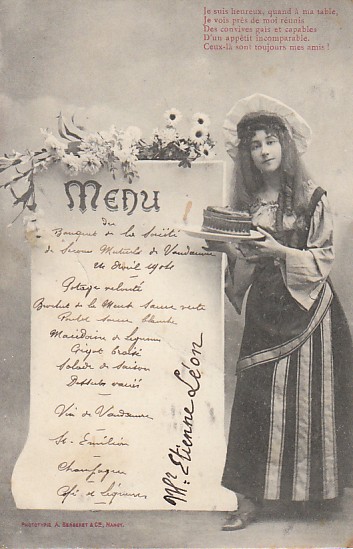 Je suis heureux, quand à ma table,
Je vois près de moi réunis
Des convives gais et capables
D'un appétit incomparable.
Ceux-là sont toujours mes amis !
MENU
du
Banquet de la Société
de Secours Mutuels de Vandœuvre
24 Avril 1904
Potage velouté
Brochet de la Meuse Sauce verte
Sauce blanche
Macédoine de légumes
Gigot
Salade de saison
Desserts variés
Vin de Vandœuvre
St-Emilion
Champagne
Café et Liqueurs
Mr. Etienne Léon
PHOTOTYPIE A. BERGERET & Cie, NANCY.